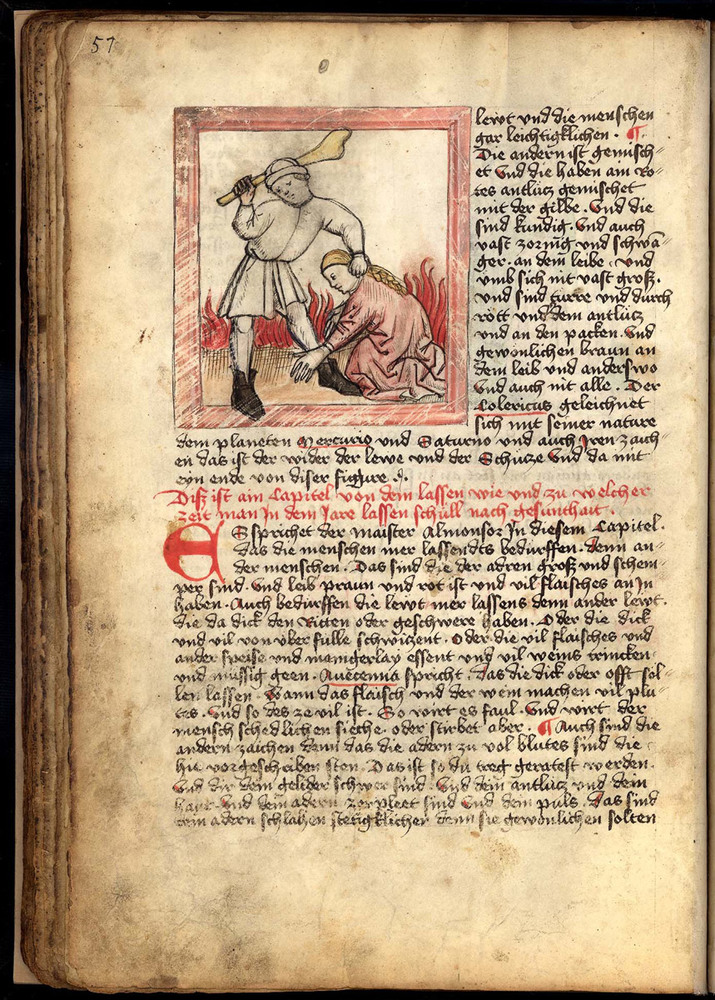 57
lewt vnd die menschen
gar leichtigklichen · ¶
Die andern ist gemisch⸗
et Vnd die haben am Ro⸗
tes antlücz gemischet
mit der gilbe · Vnd die
sind kundig · Vnd auch
vast zornig vnd schwa⸗
ger · an dem leibe · vnd
vmb sich nit vast groß ·
vnd sind türre vnd durch
rott vnd dem antlücz
vnd an den packen · Vnd
gewonlichen braun an
dem leib vnd anderswo
Vnd auch nit alle · Der
Colericus geleichnet
sich mit seiner nature
dem planeten Mercurio vnd Saturno vnd auch Iren zaich⸗
en das ist der wider der lewe vnd der Schücze Vnd da mit
eyn ende von diser figure ·
Diß ist ain Capitel von dem lassen wie vnd zu welcher
zeit man In dem Jare lassen schüll nach gesunthait ·
ES sprichet der maister Almonsor In diesem Capitel ·
das die menschen mer lassendts bedürffen · denn an⸗
der menschen · Das sind die der adren groß vnd schein⸗
per sind · Vnd leib praun vnd rot ist vnd vil flaisches an In
haben · Auch bedürffen die lewt mer lassens denn ander lewt ·
die da dick den Ritten oder geschwere haben · Oder die dick
vnd vil von vber fülle schwiczent · Oder die vil flaisches vnd
ander speise vnd mainigerlay essent vnd vil weins trincken ·
vnd müssig geen · Auecenna spricht · das die dick oder offt söl⸗
len lassen · Wann das flaisch vnd der wein machen vil plu⸗
tes · Vnd so des ze vil ist · So wirt es faul · Vnd wirt der
mensch schedlichen sieche · oder stirbet aber · ¶ Auch sind die
andern zaichen denn das die adern zu vol blutes sind die
hie vorgeschriben sten · Das ist so du treg geratest werden ·
Vnd dir dein gelider schwer sind · Vnd dein antlücz vnd dein
haut · Vnd dein adern zerpleet sind Vnd dein puls · das sind
dein adern schlahen stetigklicher denn sie gewonlichen solten